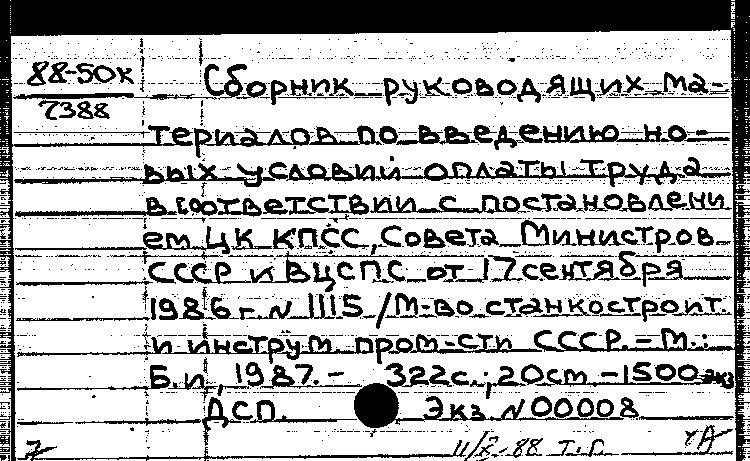 88-50к
7388
Сборник руководящих ма-
териалов по введению но-
вых условий оплаты труда
в соответствии с постановлени
ем ЦК КПСС, Совета Министров
СССР и ВЦСПС от 17 сентября
1986 г. N 1115 / М-во станкостроит.
и инструм. пром-сти СССР. - М.:
Б.и., 1987. - 322с.; 20см - 1500экз
ДСП. Экз N00008
11/X-88 т.г.